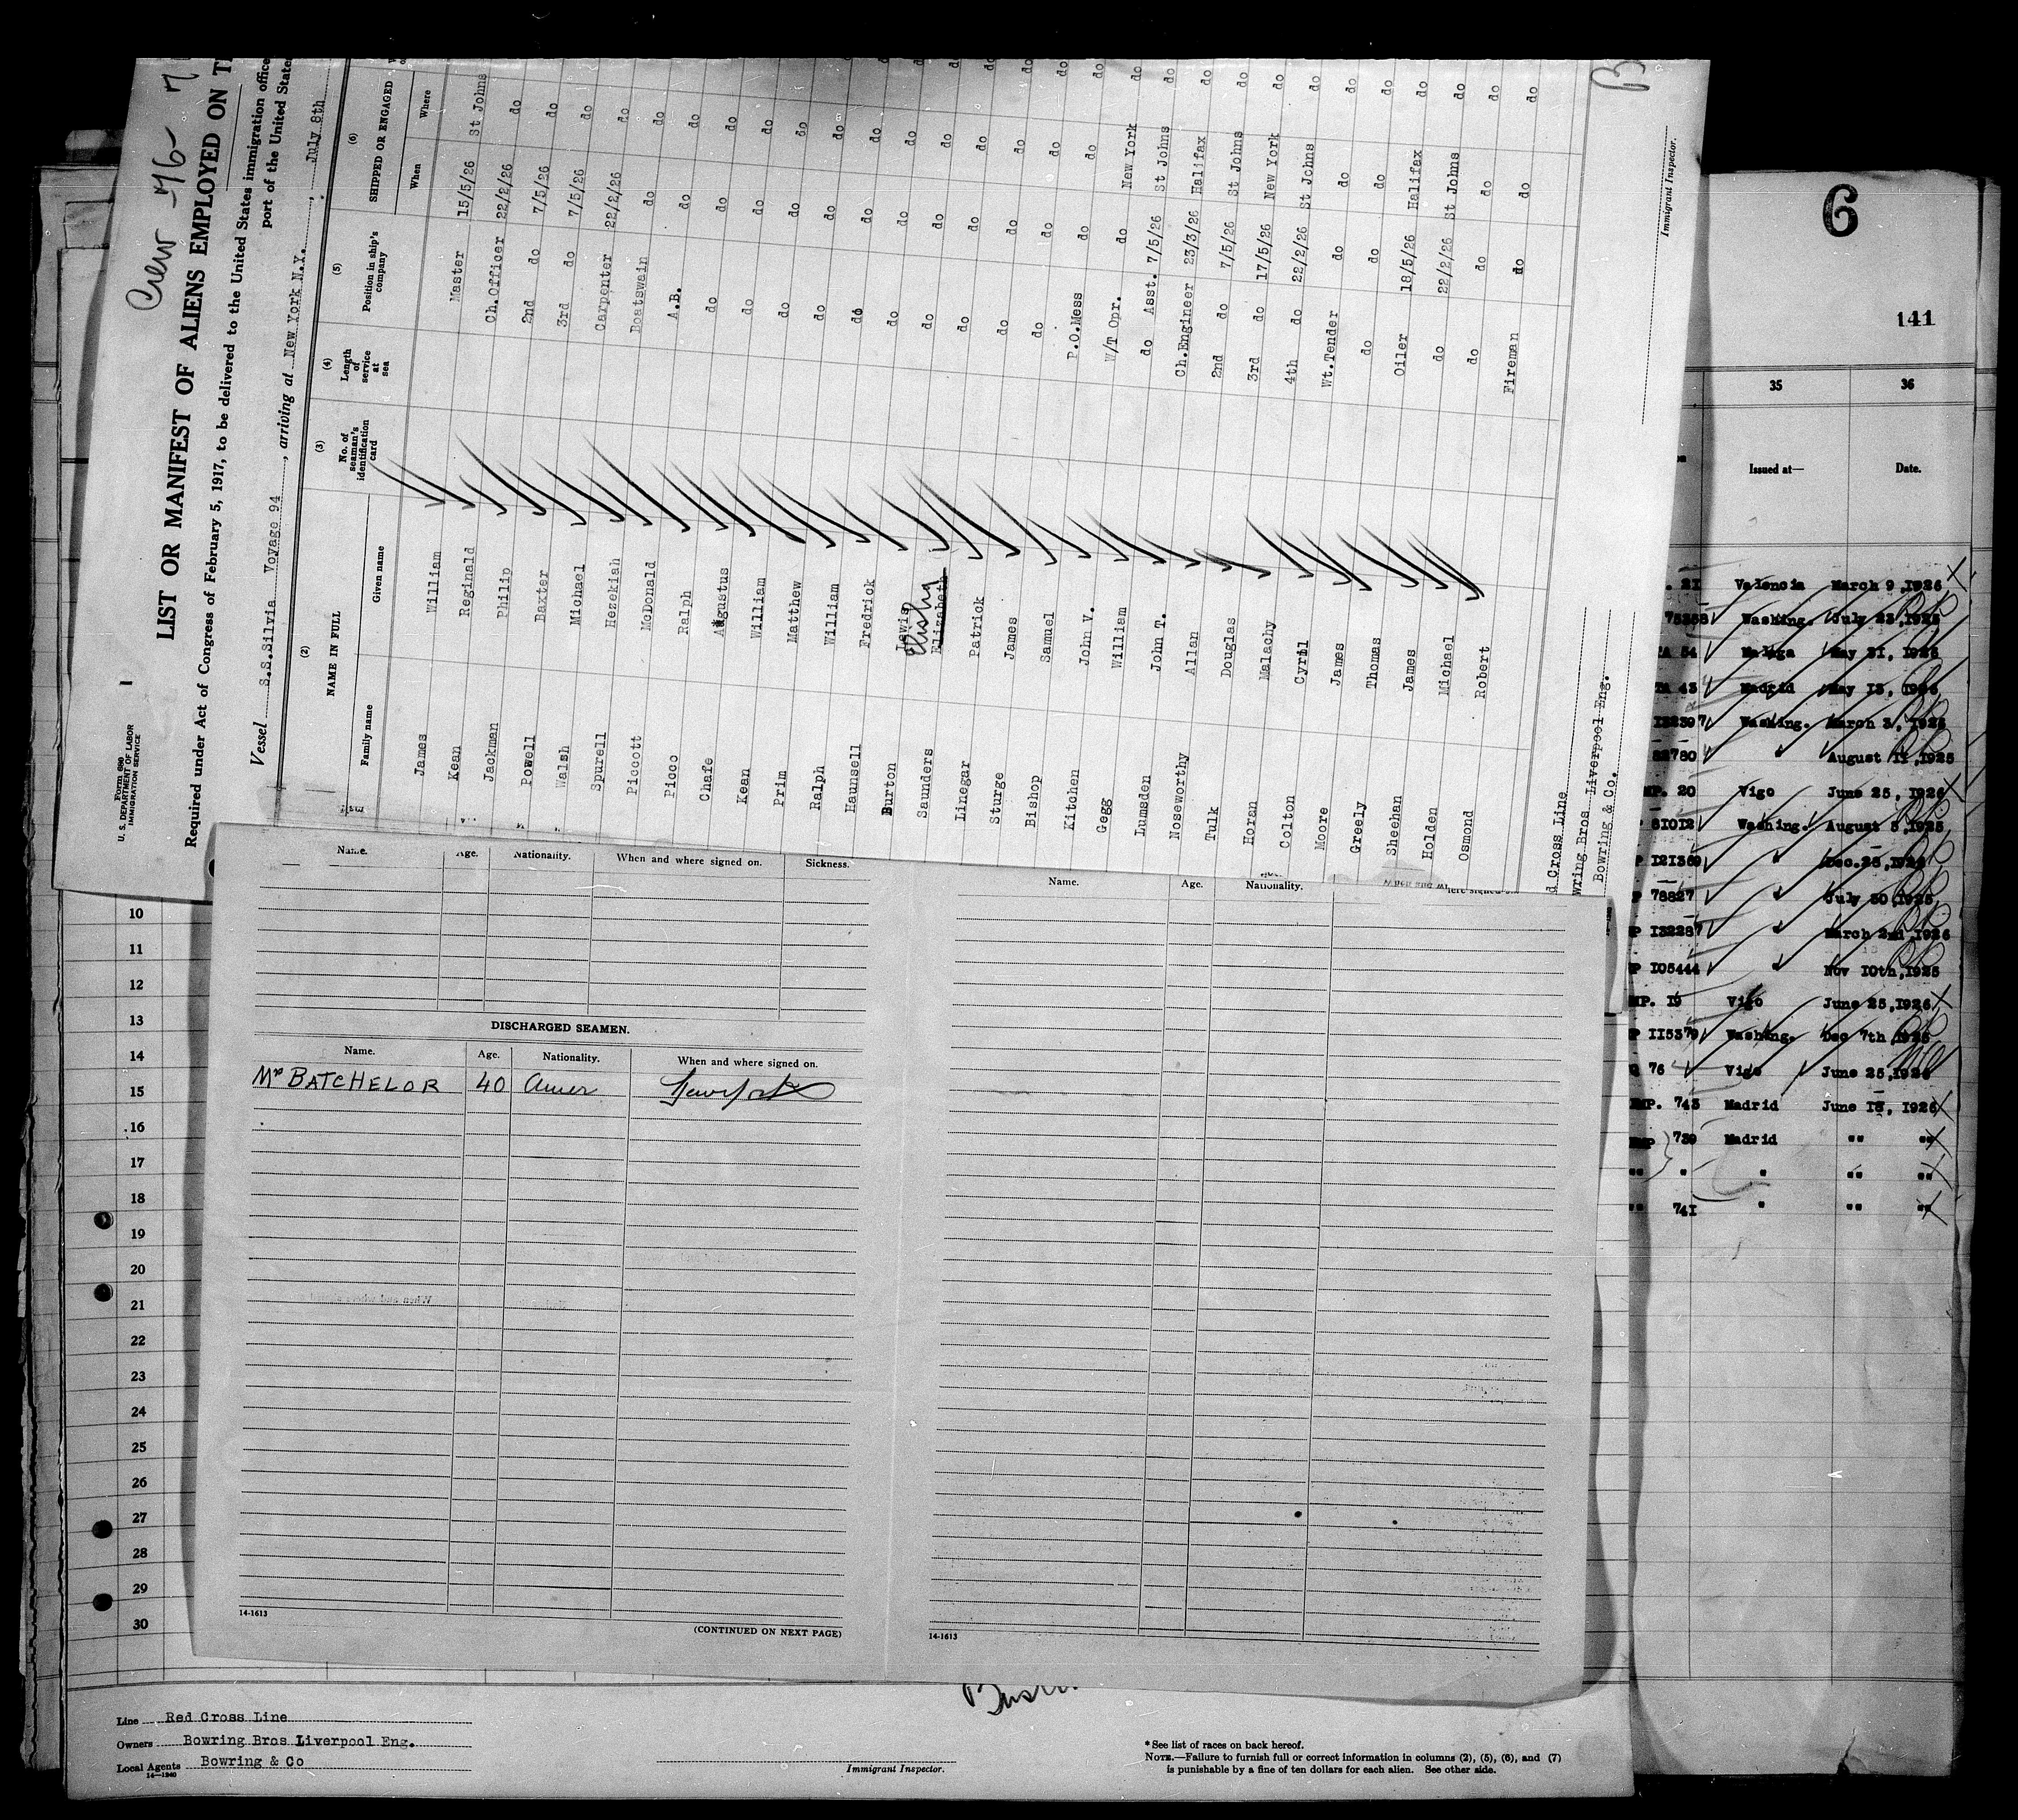 Crew 76
LIST OR MANIFEST OF ALIENS EMPLOYED ON
Required under Act of Congress of February 5, 1917, to be delivered to the United States immigration
port of the United
Form 680
U. S. DEPARTMENT OF LABOR
IMMIGRATION SERVICE
1
Vessel S.S.Silvia Voyage 94, arriving at New York N.Y., July 8th
(2) (3) (4) (5) (6)
NAME IN FULL
No. of seaman's identification card
Length of service at sea
Position in ship's company
SHIPPED OR ENGAGED
Family name Given name When Where
James William Master 15/5/26 St Johns
Kean Reginald Ch.Officer 22/2/26 do
Jackman Philip 2nd do 7/5/26 do
Powell Baxter 3rd do 7/5/26 do
Walsh Michael Carpenter 22/2/26 do
Spurell Hezekiah Boatswain do do
Piccott McDonald A.B. do do
Picco Ralph do do do
Chafe Augustus do do do
Kean William do do do
Prim Matthew do do do
Ralph William do do do
Haunsell Fredrick do do do
Burton Lewis do do do
Saunders Elisha Elizabeth do do do
Linegar Patrick do do do
Sturge James do do do
Bishop Samuel do do do
Kitchen John V. P.O.Mess do do
Gegg William W/T Opr. do New York
Lumsden John T. do Asst. 7/5/26 St Johns
Noseworthy Allan Ch.Engineer 23/3/26 Halifax
Tulk Douglas 2nd do 7/5/26 St Johns
Horan Malachy 3rd do 17/5/26 New York
Colton Cyril 4th do 22/2/26 St Johns
Moore James Wt.Tender do do
Greely Thomas do do do
Sheehan James Oiler 18/5/26 Halifax
Holden Michael do 22/2/26 St Johns
Osmond Robert do do do
Fireman do do
Cross Line
Bros Liverpool Eng.
Bowring & Co.
Immigrant Inspector.
6
141
35 36
Issued at— Date.
21 Valencia March 9,1926
Washing. July 23,1925
54 Malaga May 31, 1926
43 Madrid May 13, 1926
132397 Washing. March 3, 1926
82780 " August 11,1925
MP. 20 Vigo June 25, 1926
81012 Washing. August 5,1925
P 121369 " Dec.28,
P 78827 " July 30,1925
P 132287 " March 2nd,1926
P 105444 " Nov 10th,1925
MP. 19 Vigo June 25,1926
P 115379 Washing. Dec 7th,1925
76 Vigo June 25,1926
MP. 743 Madrid June 18, 1926
MP 739 Madrid "" ""
"" " " "" ""
"" 741 " "" ""
Name. Age. Nationality. When and where signed on. Sickness.
Name. Age. Nationality.
DISCHARGED SEAMEN.
Name. Age. Nationality. When and where signed on.
Mr BATCHELOR 40 Amer New York
14-1613
(CONTINUED ON NEXT PAGE)
14-1613
10
11
12
13
14
15
16
17
18
19
20
21
22
23
24
25
26
27
28
29
30
Line Red Cross Line
Owners Bowring Bros Liverpool Eng.
Local Agents Bowring & Co
14—1240
Immigrant Inspector.
* See list of races on back hereof.
NOTE.—Failure to furnish full or correct information in columns (2), (5), (6), and (7)
is punishable by a fine of ten dollars for each alien. See other side.